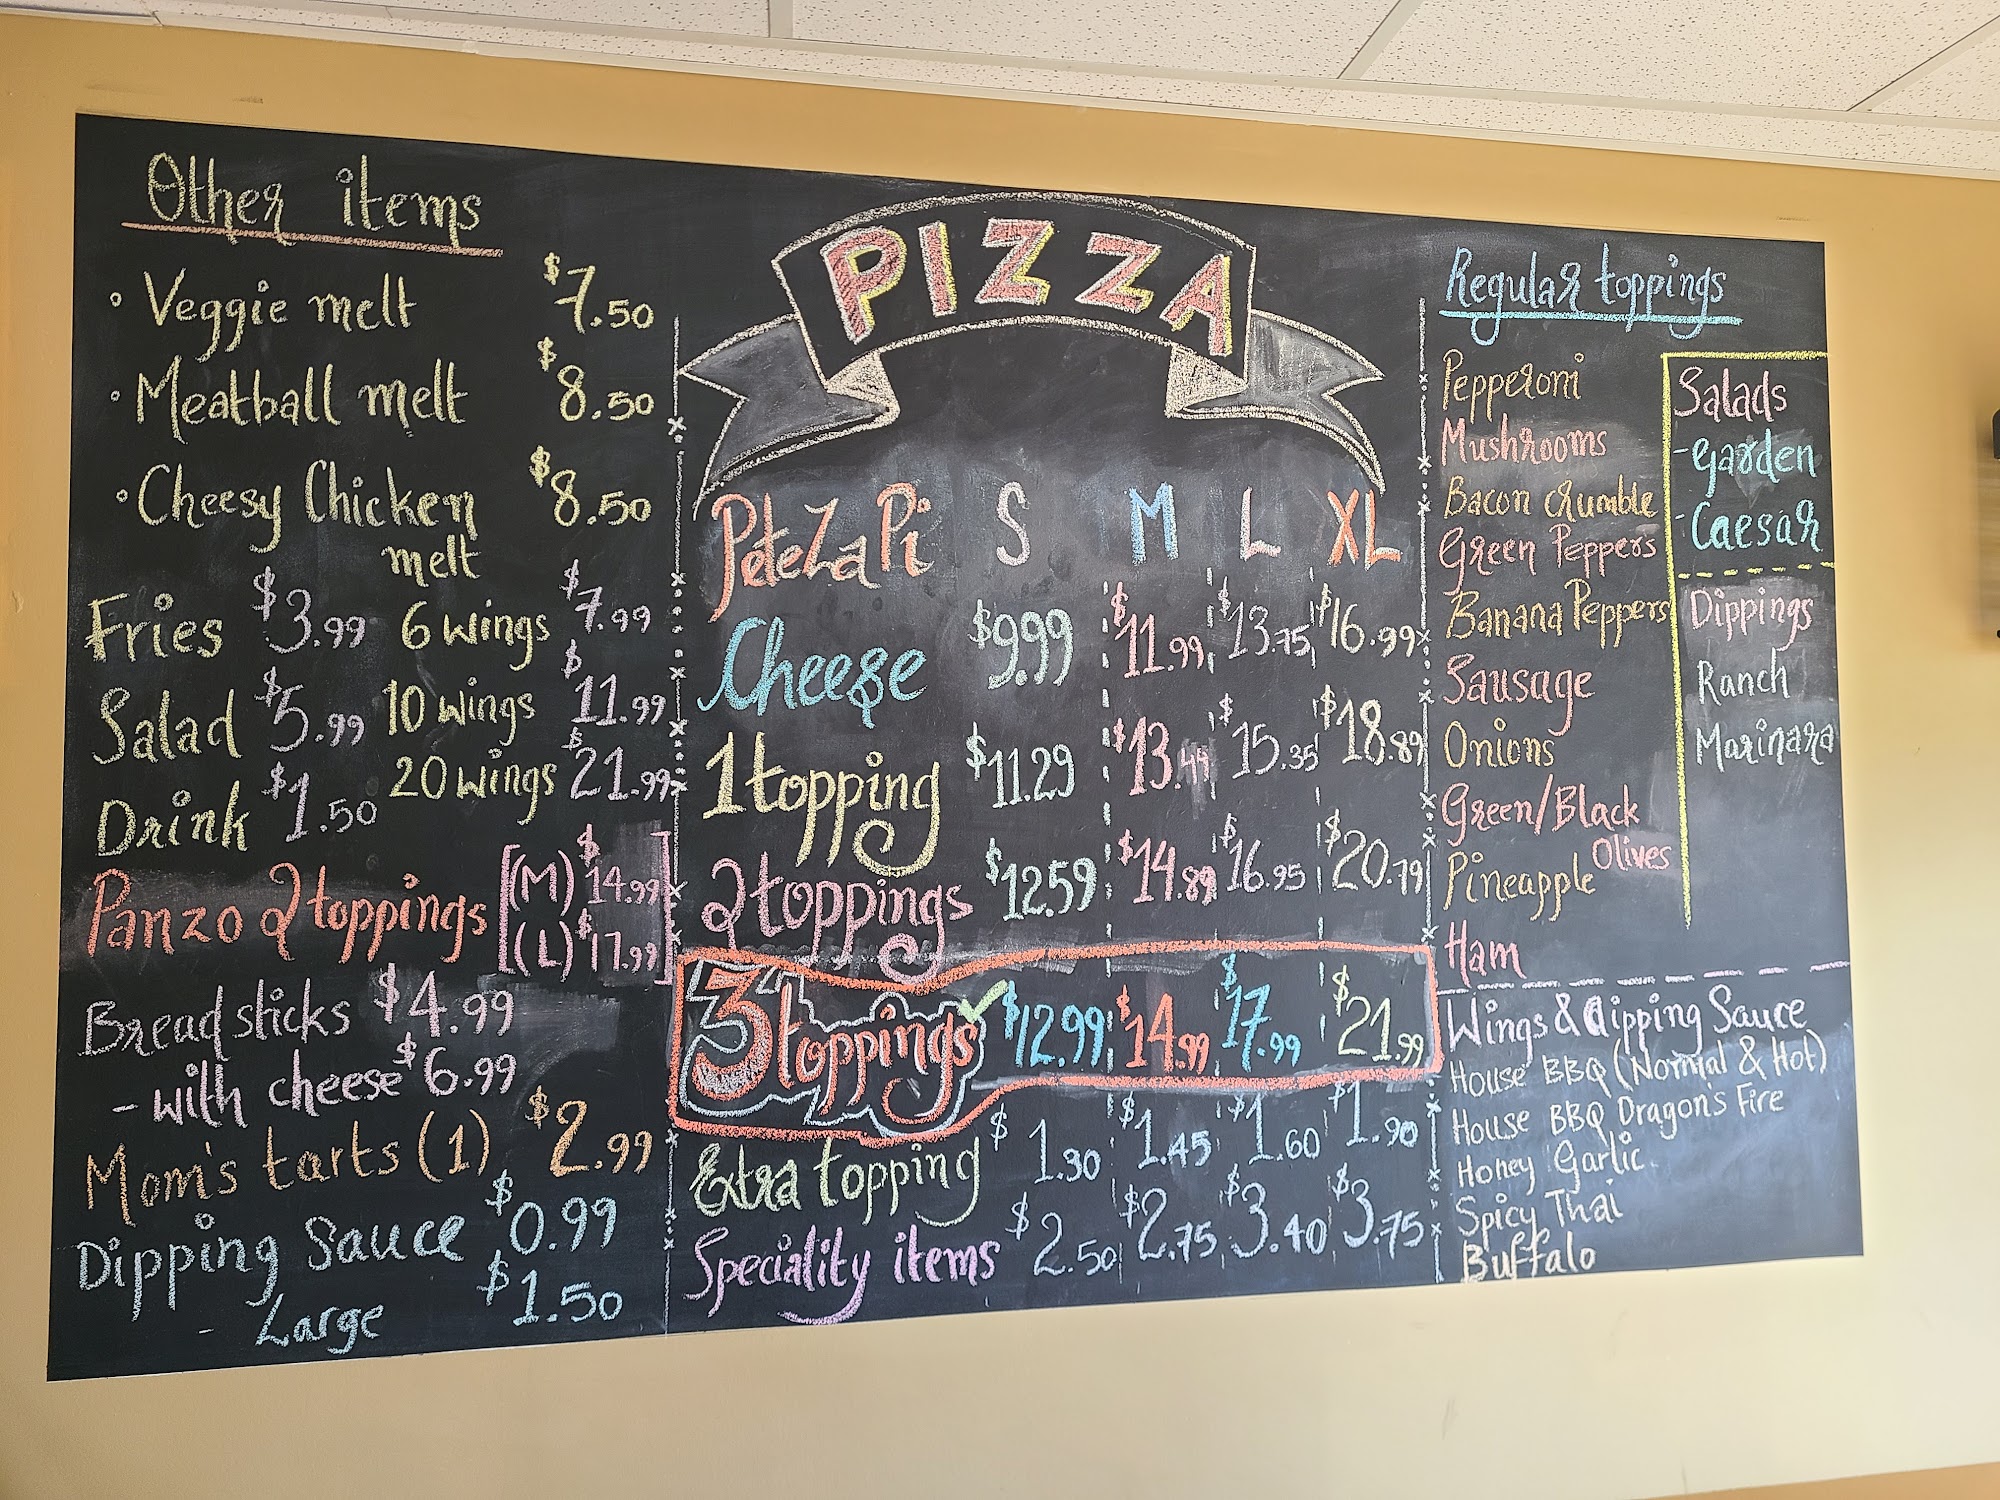 Other items
• Veggie melt $7.50
• Meatball melt $8.50
• Cheesy Chicken $8.50
melt
Fries $3.99 6 wings $7.99
Salad $5.99 10 wings $11.99
Drink $1.50 20 wings $21.99
Panzo 2 toppings [(M) $14.99]
[(L) $17.99]
Bread sticks $4.99
- with cheese $6.99
Mom's tarts (1) $2.99
Dipping Sauce $0.99
- Large $1.50
PIZZA
PeteZaPi S M L XL
Cheese $9.99 $11.99 $13.75 $16.99
1 topping $11.29 $13.49 $15.35 $18.89
2 toppings $12.59 $14.89 $16.95 $20.79
3 toppings $12.99 $14.99 $17.99 $21.99
Extra topping $1.30 $1.45 $1.60 $1.90
Speciality items $2.50 $2.75 $3.40 $3.75
Regular toppings
Pepperoni
Mushrooms
Bacon crumble
Green Peppers
Banana Peppers
Sausage
Onions
Green/Black
Olives
Pineapple
Ham
Salads
- Garden
- Caesar
Dippings
Ranch
Marinara
Wings & dipping Sauce
House BBQ (Normal & Hot)
House BBQ Dragon's Fire
Honey Garlic
Spicy Thai
Buffalo